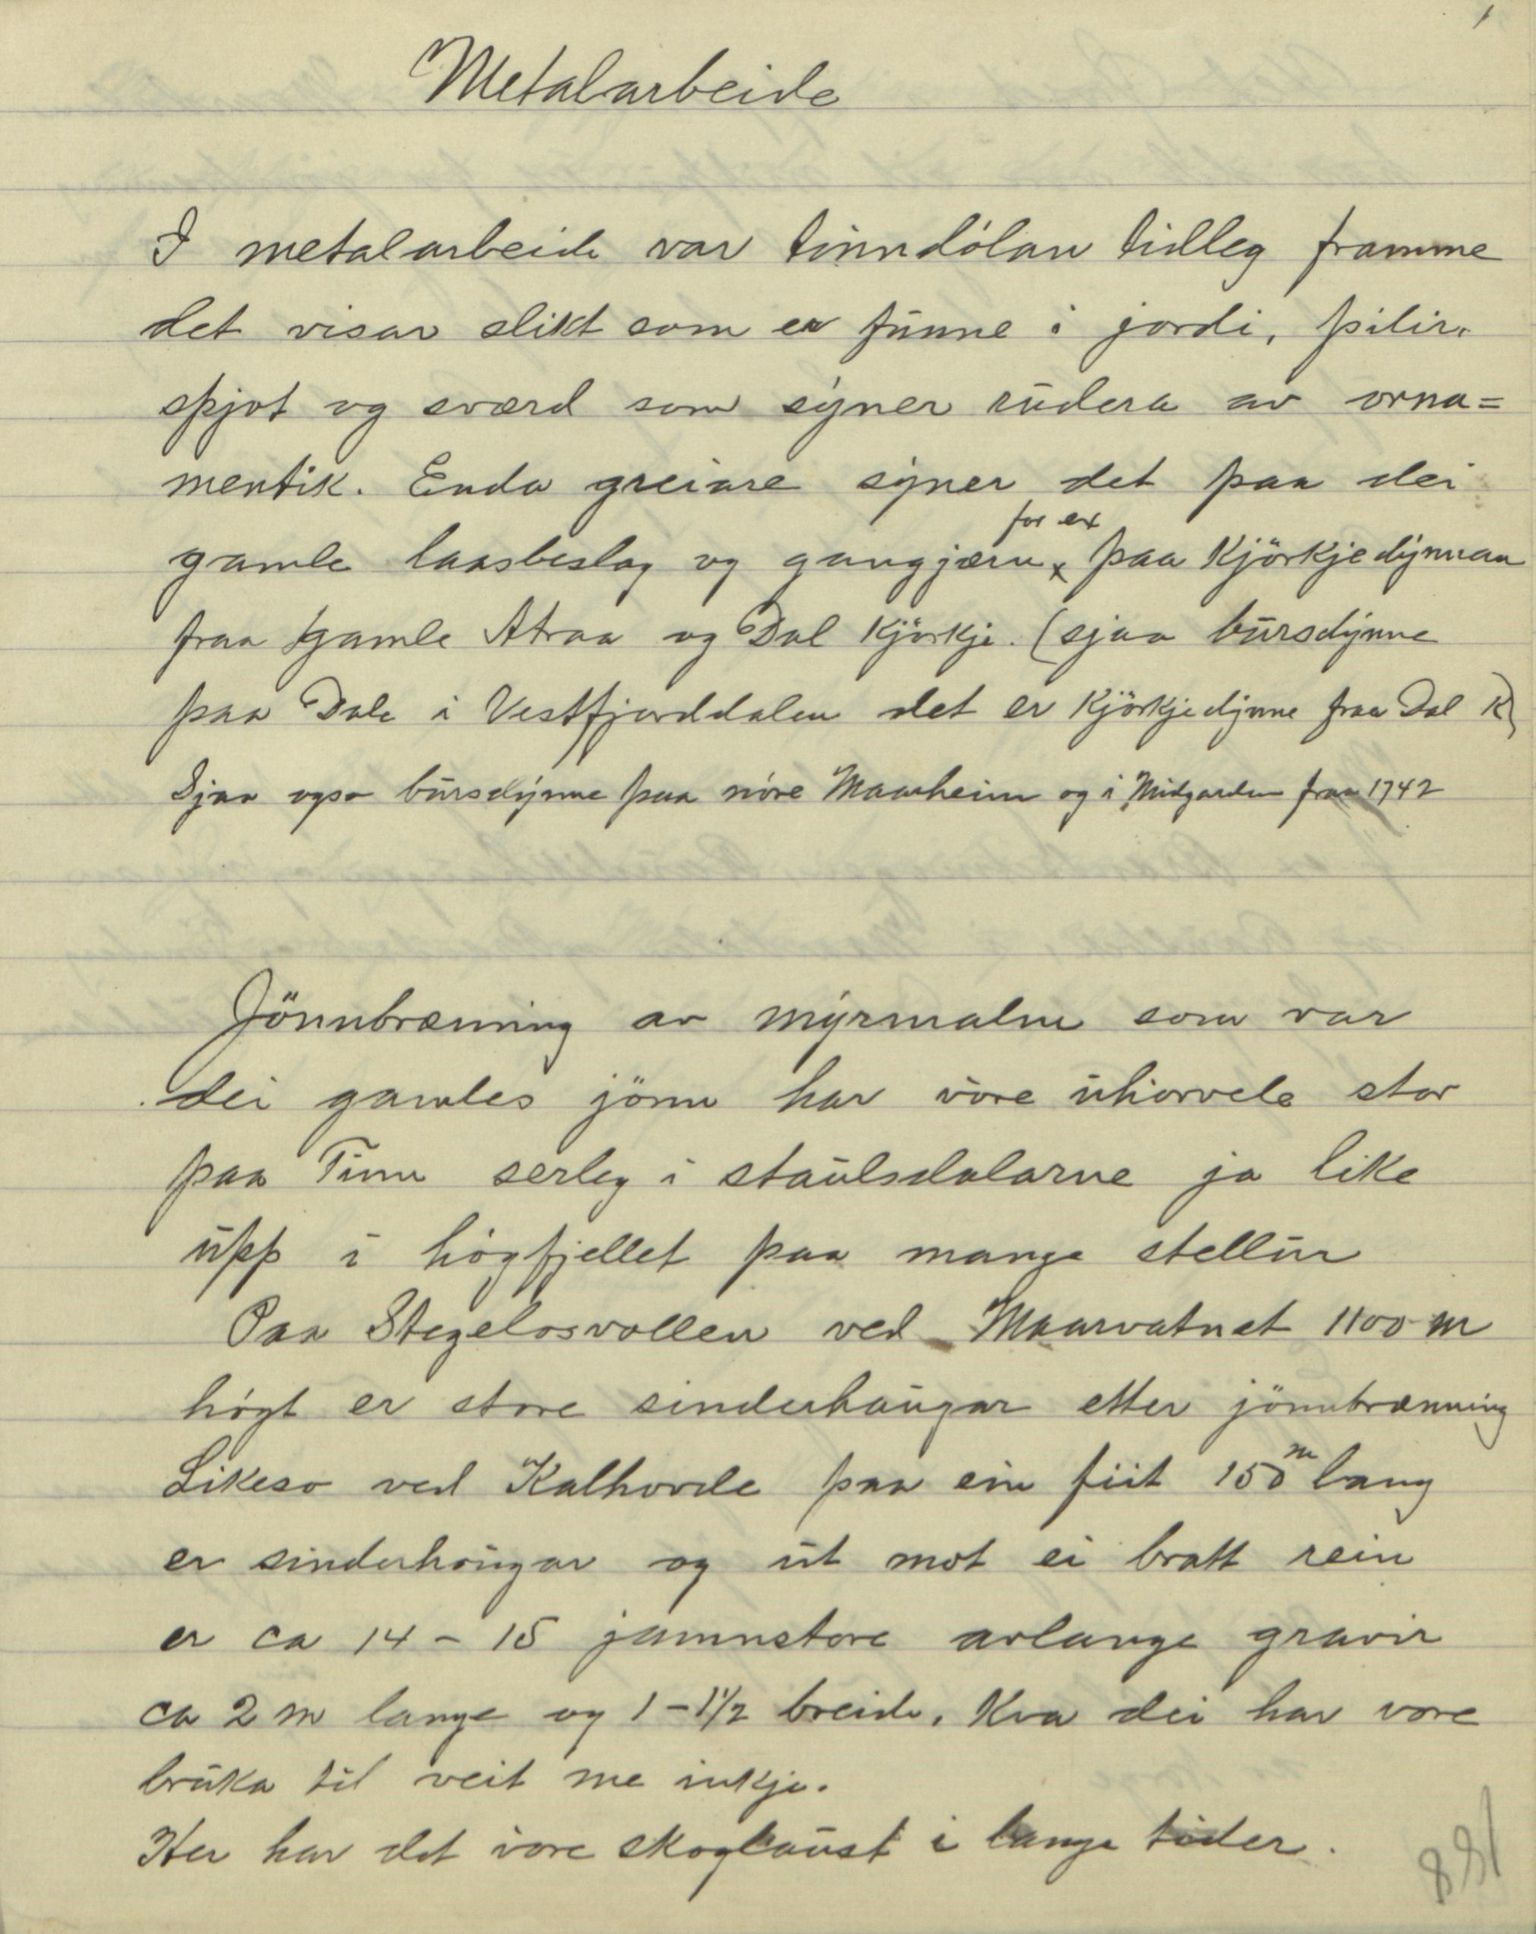 1
Metalarbeide
I metalarbeide var tinndölan tidleg framme
det visar slikt som er funne i jordi, pilir,
spjot og sværd som syner rudera av orna=
mentik. Enda greiare syner det paa dei
for ex
gamle laasbeslag og gangjærn x paa Kjörkjedynnan
fraa gamle Atraa og Dal Kjörkje. (sjaa bursdynne
paa Dale i Vestfjorddalen det er Kjörkjedynne fraa Dal K)
Sjaa ogso bursdynne paa nöre Maarheim og i Midgarden fraa 1742
Jönnbrænning av myrmalm som var
dei gamles jönn har vore uhorvele stor
paa Tinn serleg i staulsdalarne ja like
upp i högfjellet paa mange stellur
Paa Stegelosvollen ved Maarvatnet 1100 m
högt er store sinderhaugar etter jönnbrænning
Likeso ved Kalhovde paa ein fiit 150 m lang
er sinderhougar og ut mot ei bratt rein
er ca 14 - 15 jamnstore avlange gravir
ca 2 m lange og 1 - 1 1/2 breide. Kva dei har vore
bruka til veit me inkje.
Her har det vore skoglaust i lange tider.
188